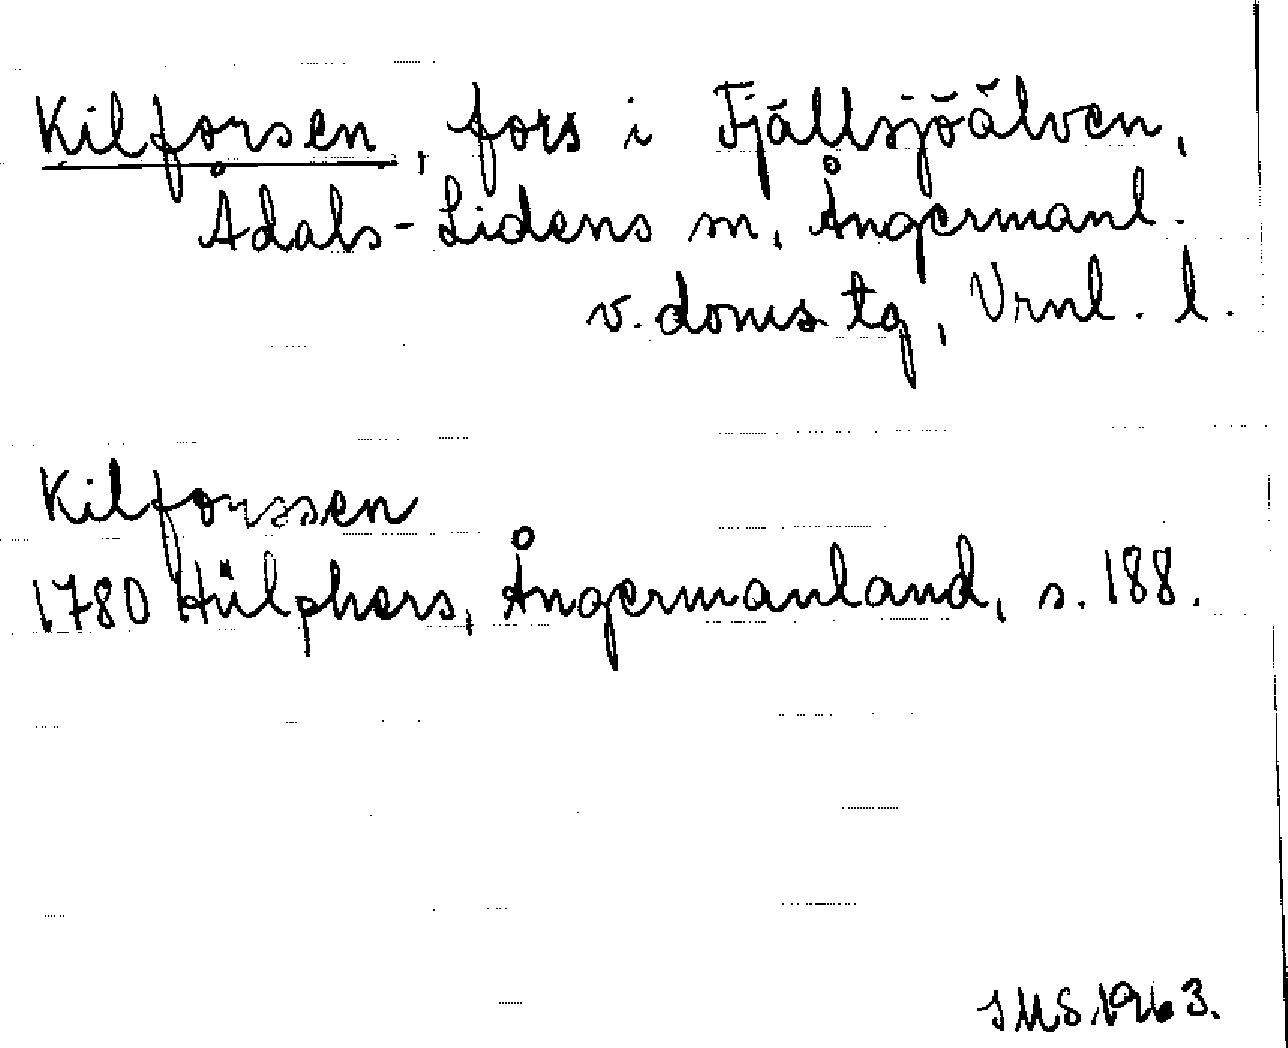 Kilforsen, fors i Fjällsjöälven,
Ådals-Lidens sn, Ångermanl.
v. doms tg, Vrnl. l.
Kilforssen
1780 Hülphers, Ångermanland, s. 188.
SMS.1963.